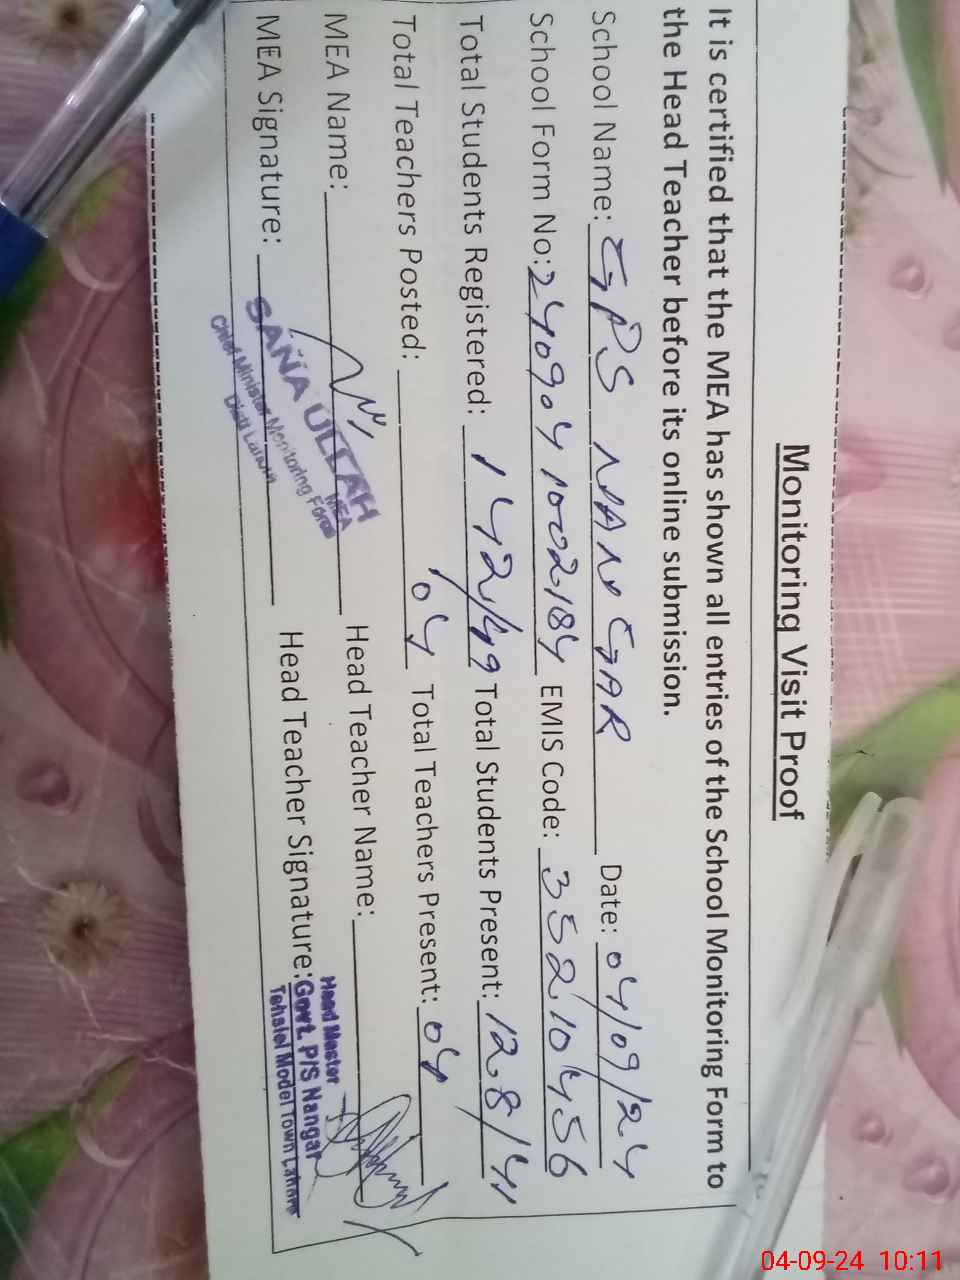 Monitoring Visit Proof
It is certified that the MEA has shown all entries of the School Monitoring Form to
the Head Teacher before its online submission.
School Name: GPS NANGAR Date: 04/09/24
School Form No: 2409041002184 EMIS Code: 35210456
Total Students Registered: 142/49 Total Students Present: 128/
Total Teachers Posted: 04 Total Teachers Present: 04
MEA Name: Head Teacher Name:
MEA Signature: Head Teacher Signature:
SANA ULLAH
MEA
Chief Minister Monitoring Force
Distt Lahore
Head Master
Govt. P/S Nangar
Tehsiel Model Town Lahore
04-09-24 10:11